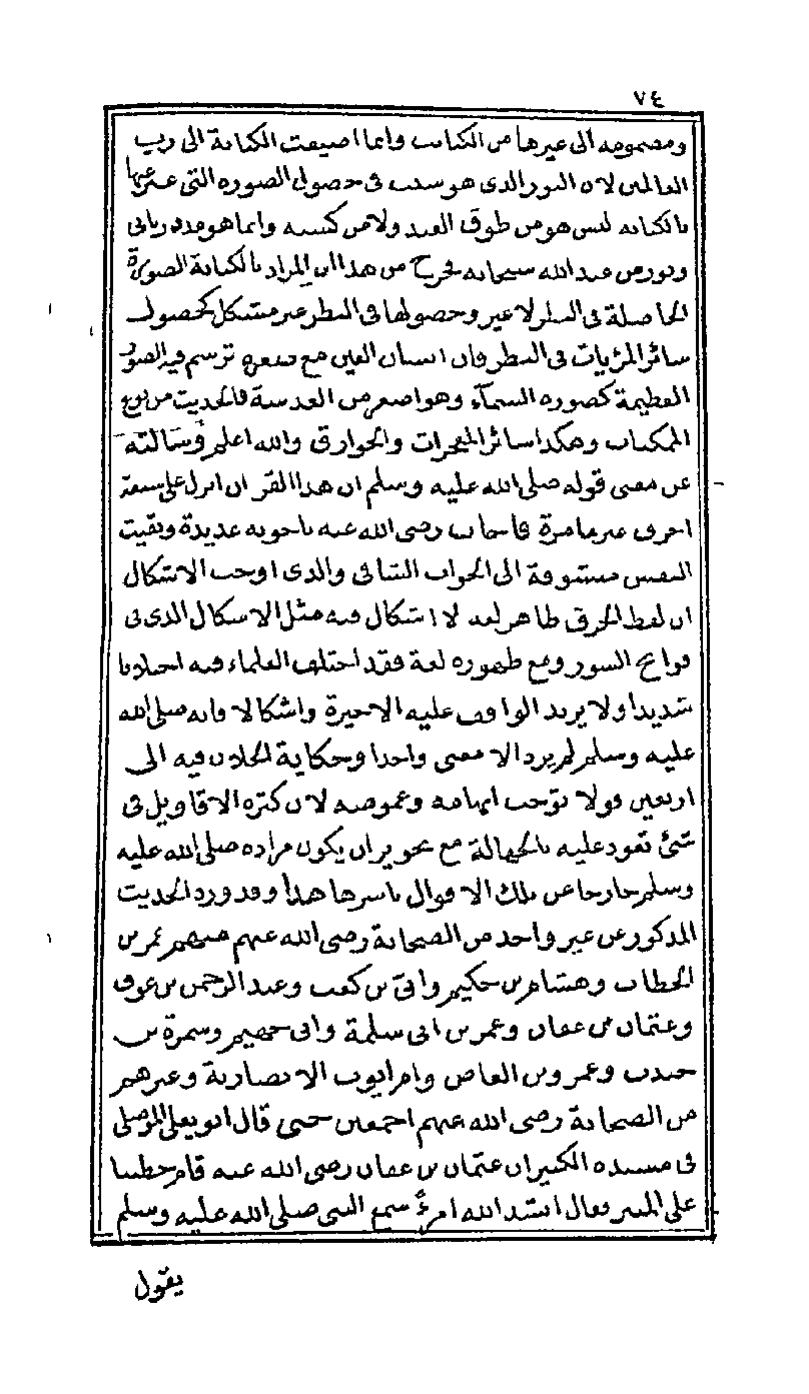 ٧٤
ومضمومه الى غيرها من الكتاب وانما اضيفت الكتابة الى رب
العالمين لان النور الذى هو سبب فى حصول الصورة التى عبر عنها
بالكتابة ليس هو من طوق العبد ولا من كسبه وانما هو مدد ربانى
ونور من عند الله سبحانه فخرج من هذا ان المراد بالكتابة الصورة
الحاصلة فى النظر لا غير وحصولها فى النظر غير مشكل كحصول
سائر المرئيات فى النظر فان انسان العين مع صغره ترتسم فيه الصور
العظيمة كصورة السماء وهو اصغر من العدسة فالحديث من نوع
الممكنات وهكذا سائر المعجزات والخوارق والله اعلم وسألته
عن معنى قوله صلى الله عليه وسلم ان هذا القرآن انزل على سبعة
احرف غير ما مرة فاجاب رضى الله عنه باجوبة عديدة وبقيت
النفس متشوفة الى الجواب الشافى والذى اوجب الاشكال
ان لفظ الحرف ظاهر لغة لا اشكال فيه مثل الاشكال الذى فى
فواتح السور ومع ظهوره لغة فقد اختلف العلماء فيه اختلافا
شديدا ولا يزيد الواقف عليه الا حيرة واشكالا فانه صلى الله
عليه وسلم لم يرد الا معنى واحدا وحكاية الخلاف فيه الى
اربعين قولا توجب ابهامه وغموضه لان كثرة الاقاويل فى
شئ تعود عليه بالجهالة مع تجويز ان يكون مراده صلى الله عليه
وسلم خارجا عن تلك الاقوال باسرها هذا وقد ورد الحديث
المذكور عن غير واحد من الصحابة رضى الله عنهم منهم عمر بن
الخطاب وهشام بن حكيم وابى بن كعب وعبد الرحمن بن عوف
وعثمان بن عفان وعمر بن ابى سلمة وابى جهيم وسمرة بن
جندب وعمرو بن العاص وام ايوب الانصارية وغيرهم
من الصحابة رضى الله عنهم اجمعين حتى قال ابو يعلى الموصلى
فى مسنده الكبير ان عثمان بن عفان رضى الله عنه قام خطيبا
على المنبر فقال انشد الله امرءً سمع النبى صلى الله عليه وسلم
يقول